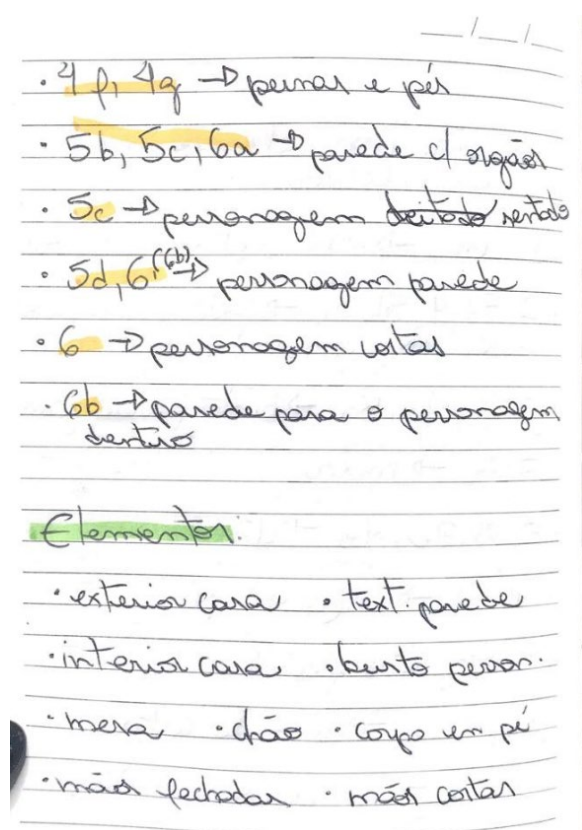 __/__/__
· 4f, 4g → pernas e pés
· 5b, 5c, 6a → parede c/ orgãos
· 5c → personagem deitado sentado
· 5d, 6 (6b) → personagem parede
· 6 → personagem costas
· 6b → parede para o personagem
dentro
Elementos:
· exterior casa · text. parede
· interior casa · busto person.
· mesa · chão · corpo em pé
· mãos fechadas · mãos costas